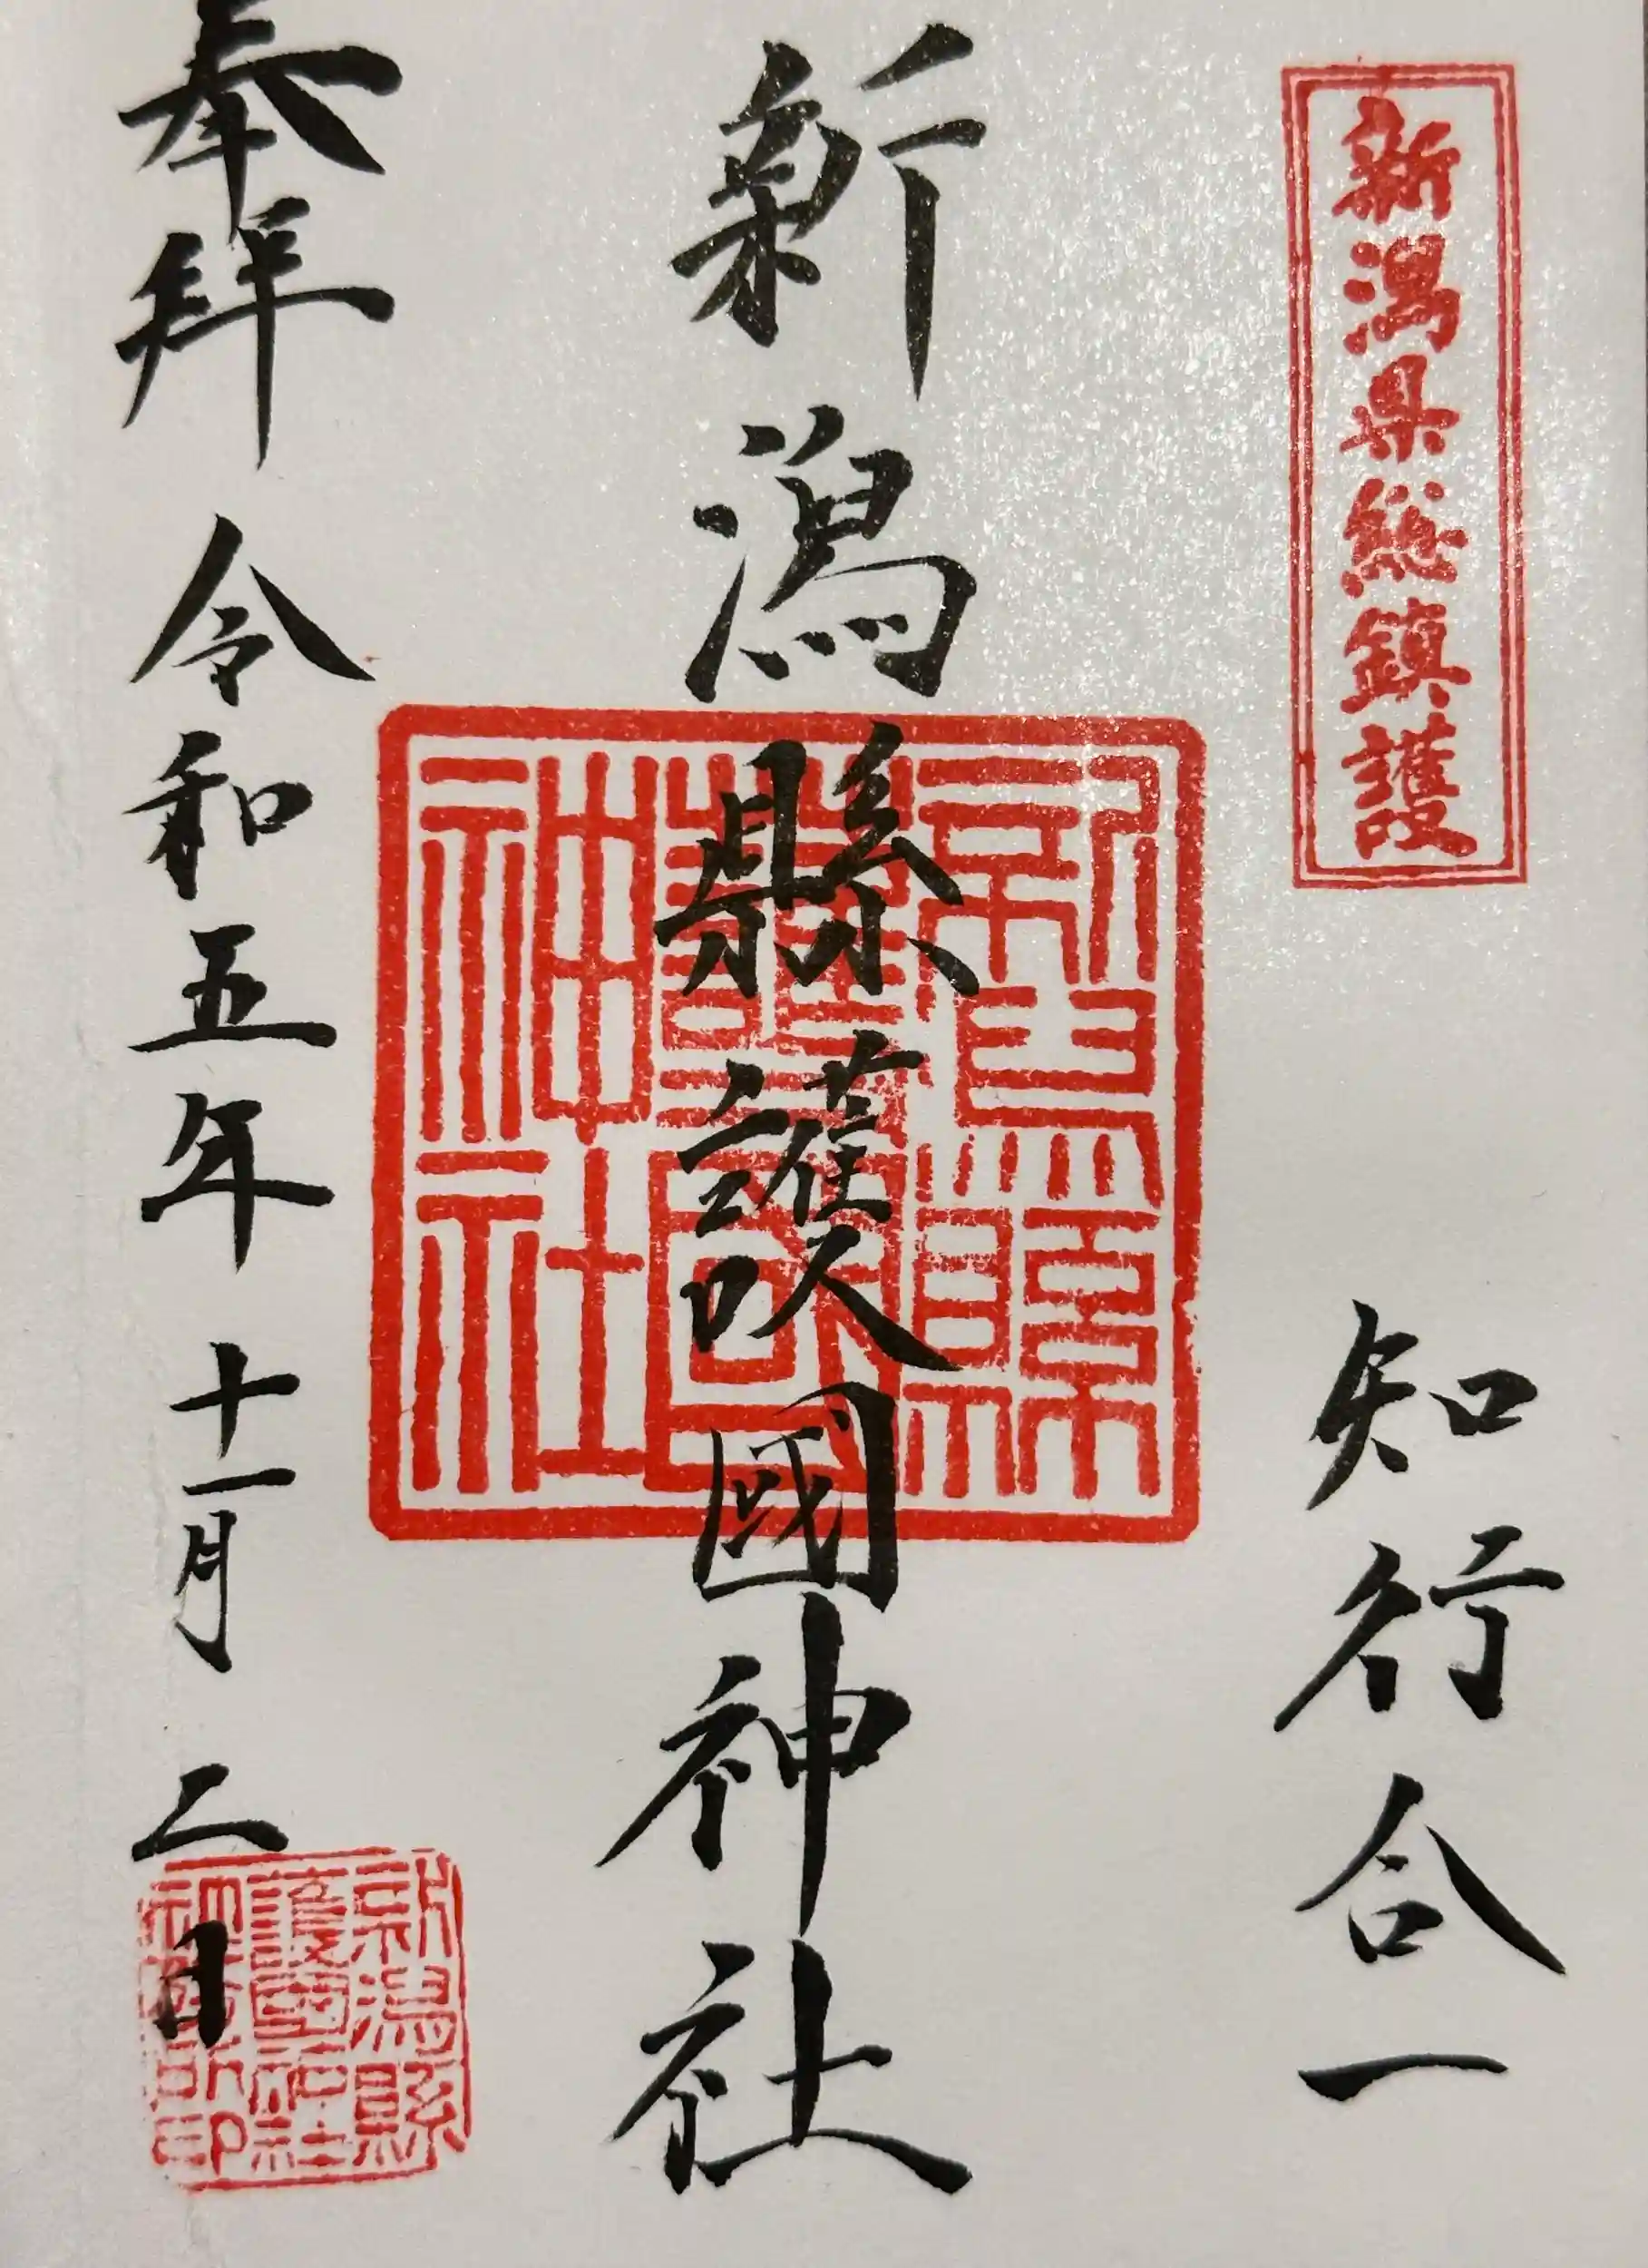 新潟県総鎮護
知行合一
新潟縣護國神社
新潟縣
護國
神社
奉拝 令和五年 十一月 二日
新潟縣
護國神社
社務所印